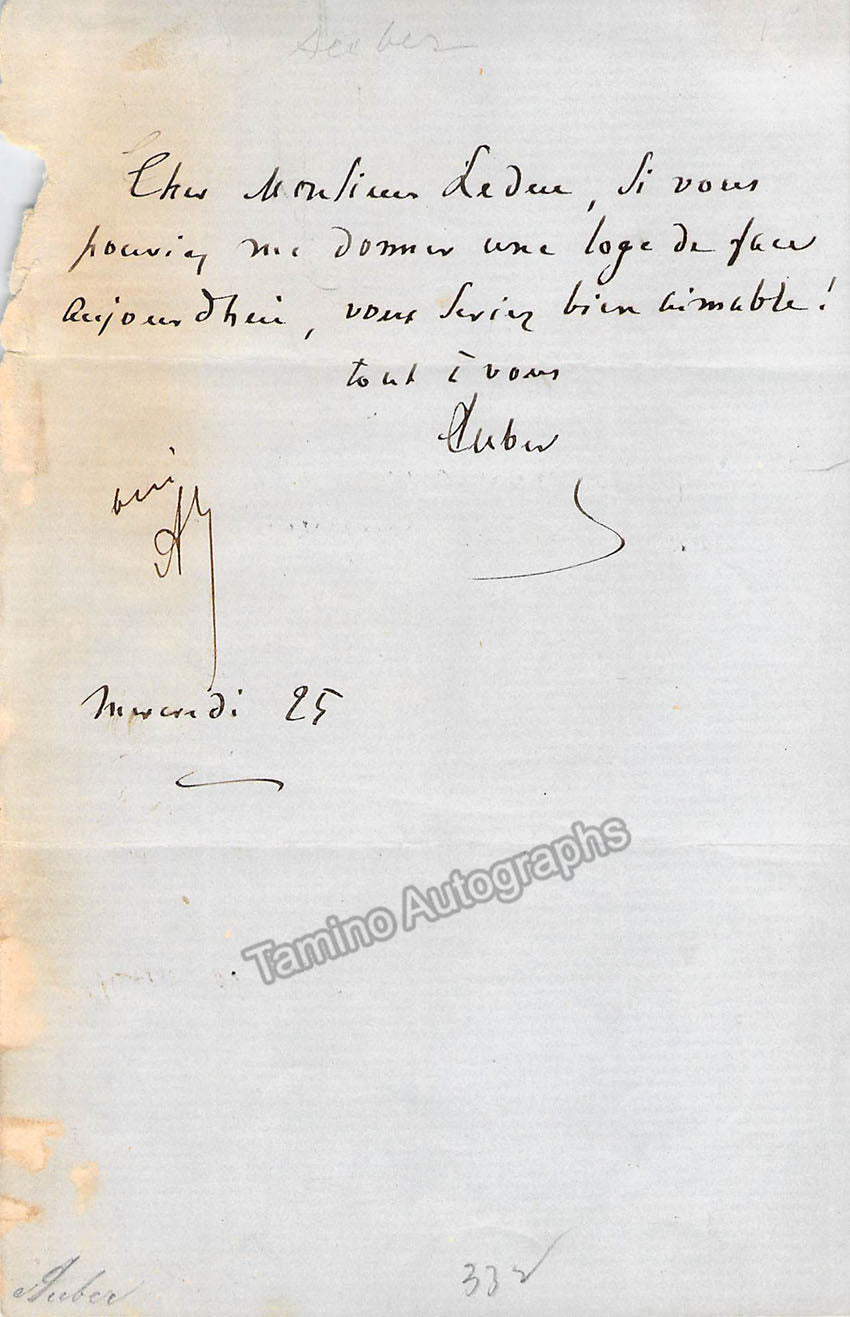 Auber
Cher Monsieur Leduc, Si vous
pouviez me donner une loge de face
aujourdhui, vous seriez bien aimable!
tout à vous
Auber
oui
Mercredi 25
Tamino Autographs
Auber
332